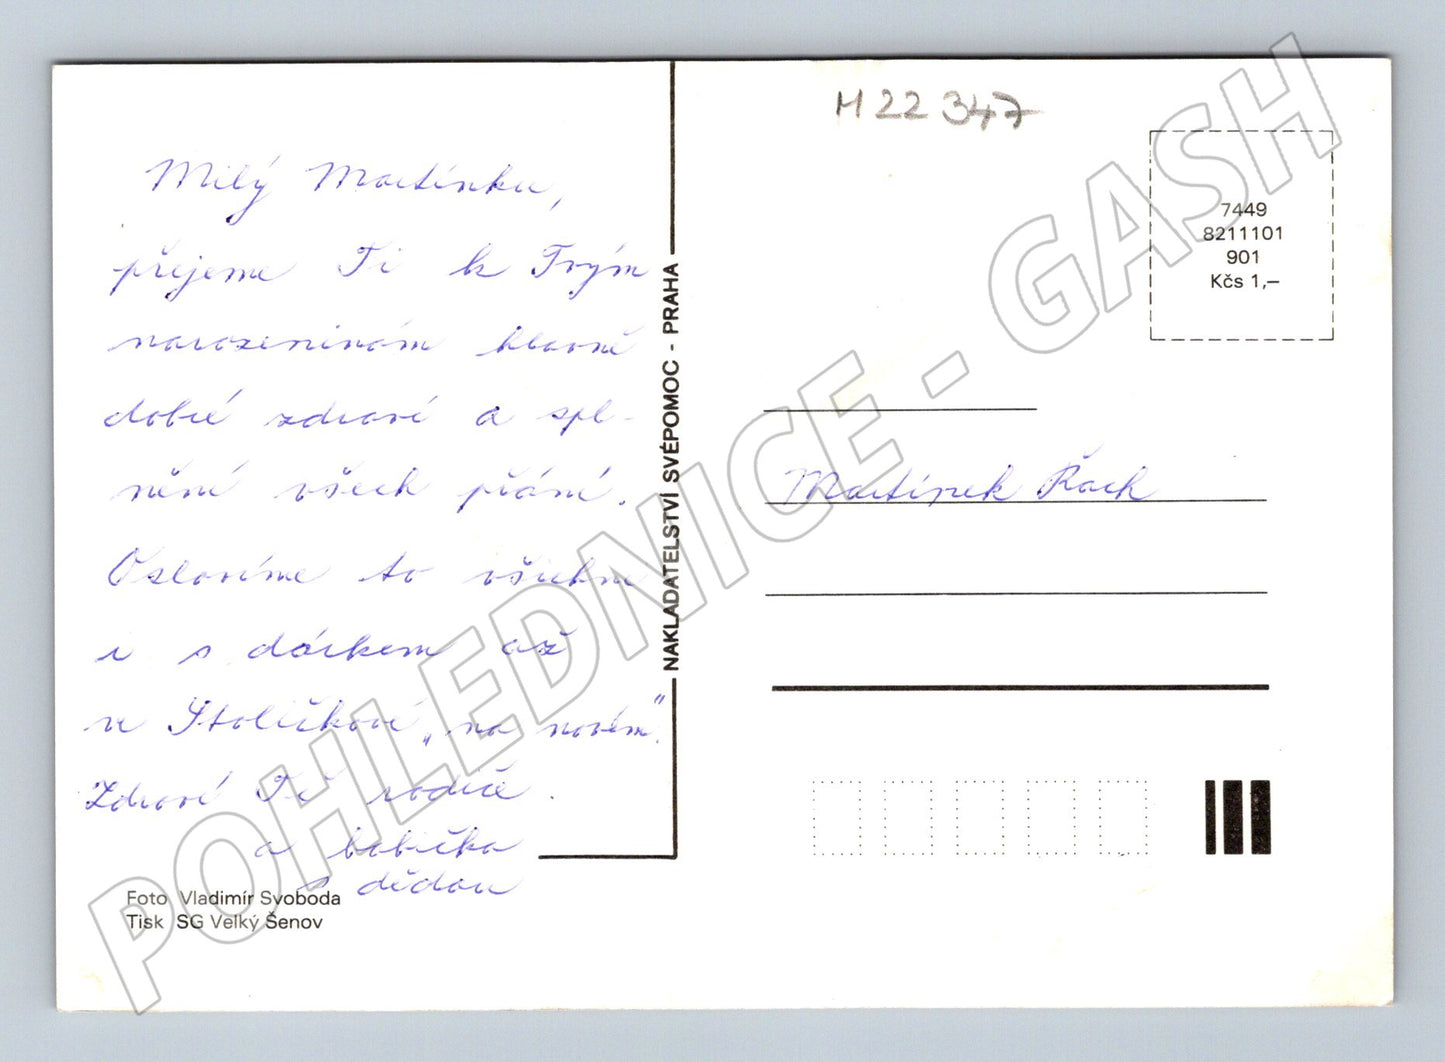 Milý Martínku,
přejeme Ti k Tvým
narozeninám hlavně
dobré zdraví a spl-
nění všech přání.
Oslavíme to všichni
i s dárkem až
ve Stolíčkově „na novém".
Zdraví Tě rodiče
a babička
s dědou
Foto Vladimír Svoboda
Tisk SG Veľký Šenov
NAKLADATELSTVÍ SVÉPOMOC - PRAHA
M 22 347
7449
8211101
901
Kčs 1,–
Martínek Řach
POHLEDNICE - GASH